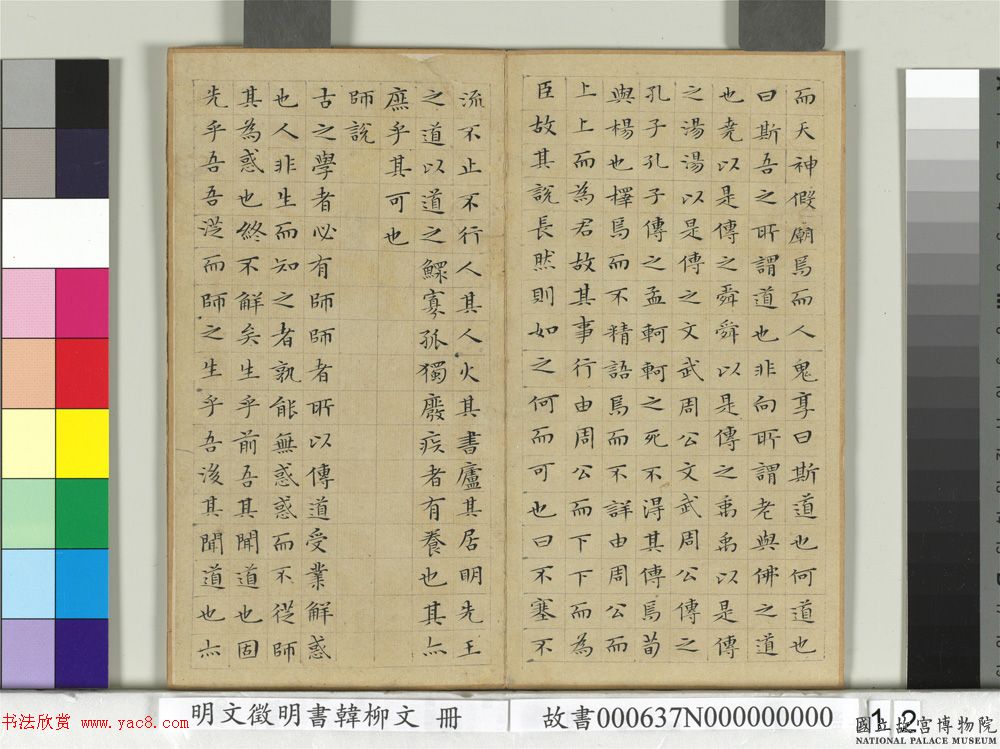 而天神假廟焉而人鬼享曰斯道也何道也
曰斯吾之所謂道也非向所謂老與佛之道
也堯以是傳之舜舜以是傳之禹禹以是傳
之湯湯以是傳之文武周公文武周公傳之
孔子孔子傳之孟軻軻之死不得其傳焉荀
與楊也擇焉而不精語焉而不詳由周公而
上上而為君故其事行由周公而下下而為
臣故其說長然則如之何而可也曰不塞不
流不止不行人其人火其書廬其居明先王
之道以道之鰥寡孤獨廢疾者有養也其亦
庶乎其可也
師說
古之學者必有師師者所以傳道受業解惑
也人非生而知之者孰能無惑惑而不從師
其為惑也終不解矣生乎前吾其聞道也固
先乎吾吾從而師之生乎吾後其聞道也亦
明文徵明書韓柳文 冊
故書000637N000000000
12
書法欣赏 www.yac8.com
國立故宮博物院
NATIONAL PALACE MUSEUM